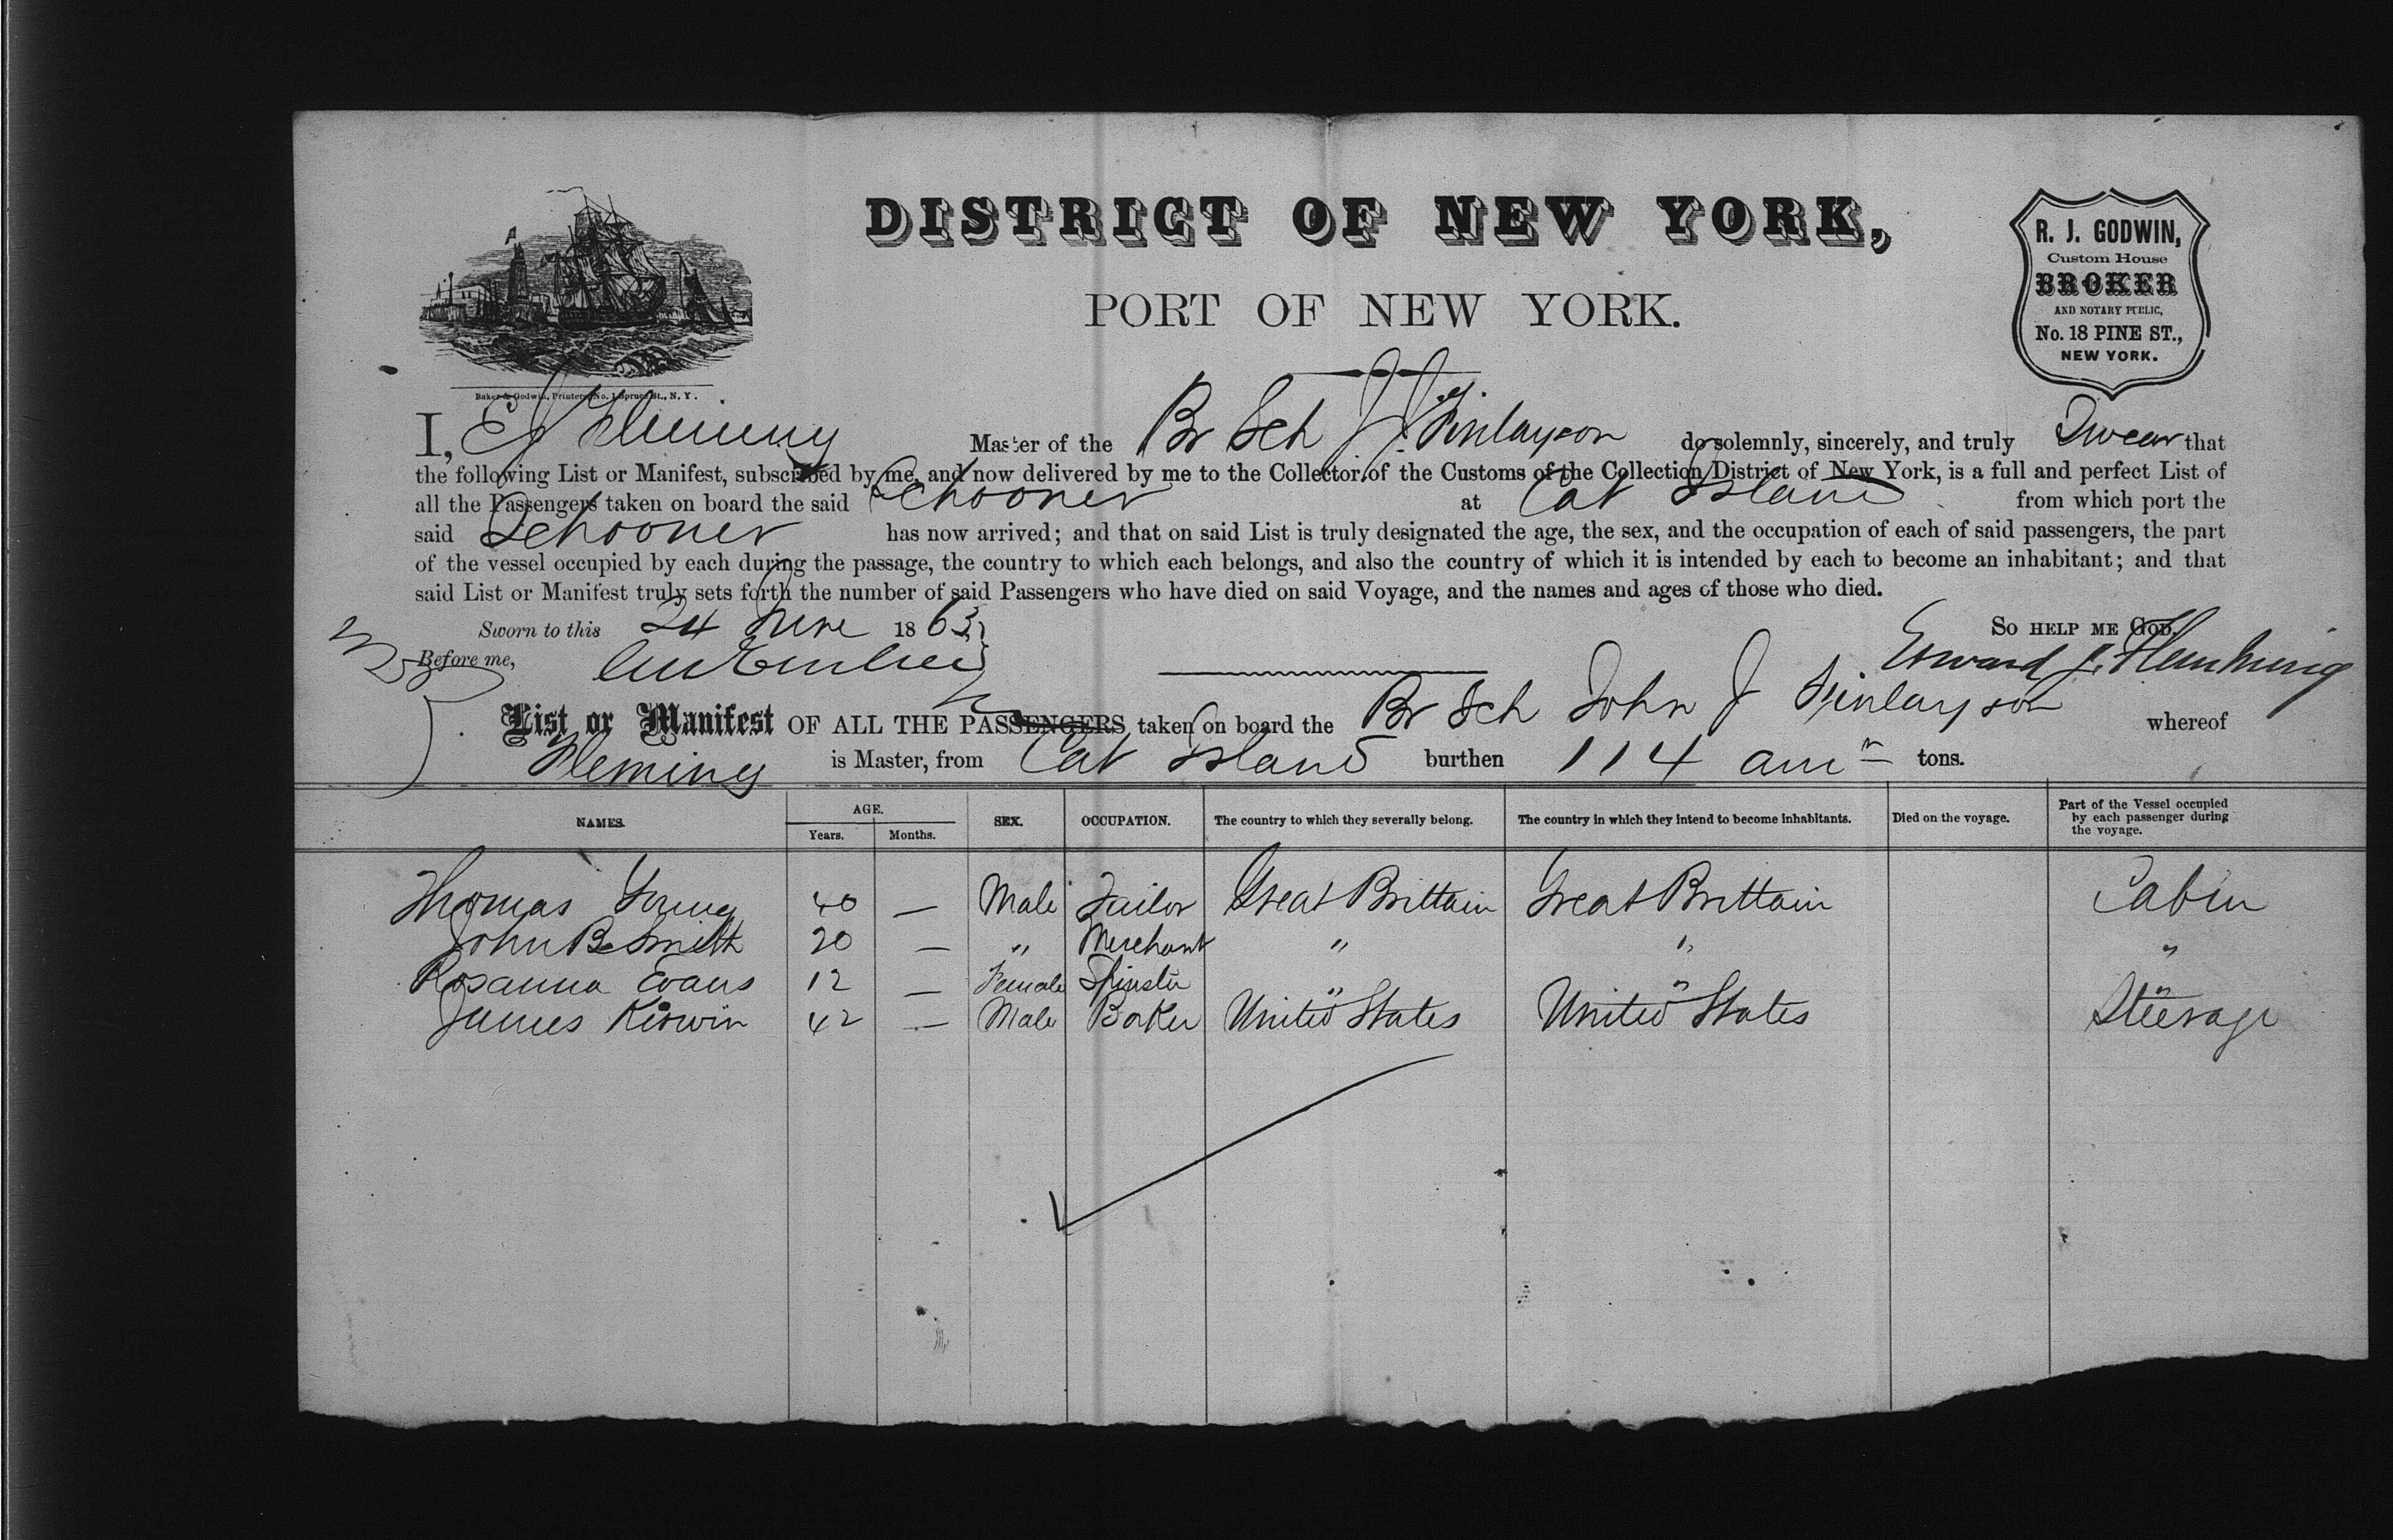 DISTRICT OF NEW YORK,
PORT OF NEW YORK.
R. J. GODWIN,
Custom House
BROKER
AND NOTARY PUBLIC,
No. 18 PINE ST.,
NEW YORK.
Baker & Godwin, Printers, No. 1 Spruce St., N. Y.
I, E J Fleming Master of the Br Sch J. J. Finlayson do solemnly, sincerely, and truly Swear that
the following List or Manifest, subscribed by me, and now delivered by me to the Collector of the Customs of the Collection District of New York, is a full and perfect List of
all the Passengers taken on board the said Schooner at Cat Island from which port the
said Schooner has now arrived; and that on said List is truly designated the age, the sex, and the occupation of each of said passengers, the part
of the vessel occupied by each during the passage, the country to which each belongs, and also the country of which it is intended by each to become an inhabitant; and that
said List or Manifest truly sets forth the number of said Passengers who have died on said Voyage, and the names and ages of those who died.
Sworn to this 24 June 1863 So HELP ME GOD.
Before me, Edward J. Flemming
List or Manifest OF ALL THE PASSENGERS taken on board the Br Sch John J Finlayson whereof
Fleming is Master, from Cat Island burthen 114 tons.
NAMES. AGE. Years. Months. SEX. OCCUPATION. The country to which they severally belong. The country in which they intend to become inhabitants. Died on the voyage. Part of the Vessel occupied by each passenger during the voyage.
Thomas Young 40 — Male Tailor Great Brittain Great Brittain Cabin
John B Smith 20 — " Merchant " " "
Rosanna Evans 12 — Female Spinster " " "
James Kirwin 42 — Male Baker United States United States Steerage